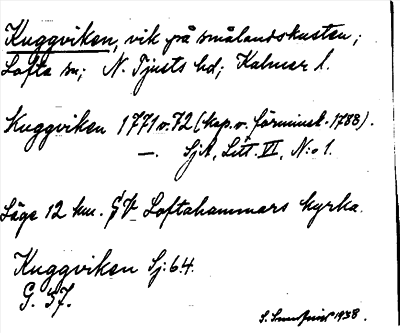 Kuggviken, vik på smålandskusten;
Lofta sn; N. Tjusts hd; Kalmar l.
Kuggviken 1771 o. 72 (kop. o. förminsk. 1788).
—. SjA, Litt. VI, N:o 1.
Läge 12 km. Loftahammars kyrka.
Kuggviken Sj: 64.
G. 57.
1938.